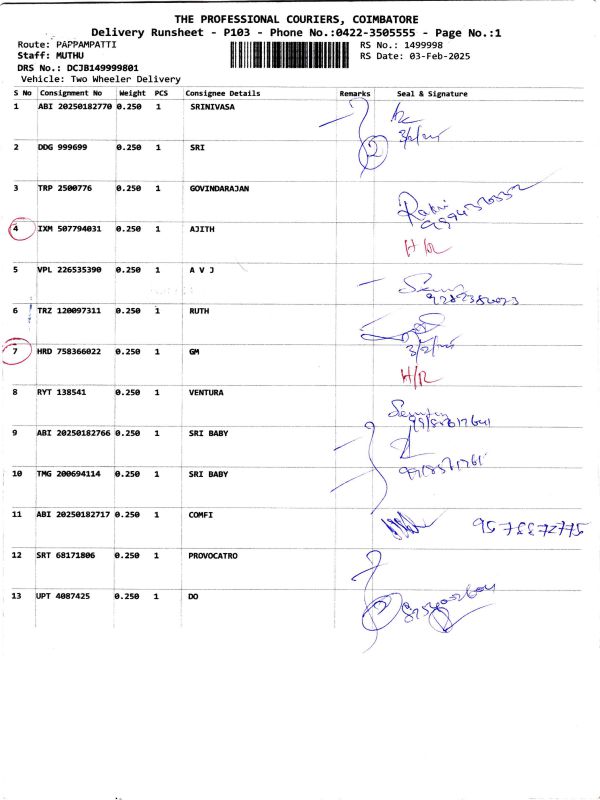 THE PROFESSIONAL COURIERS, COIMBATORE
Delivery Runsheet - P103 - Phone No.:0422-3505555 - Page No.:1
Route: PAPPAMPATTI RS No.: 1499998
Staff: MUTHU RS Date: 03-Feb-2025
DRS No.: DCJB149999801
Vehicle: Two Wheeler Delivery
S No Consignment No Weight PCS Consignee Details Remarks Seal & Signature
1 ABI 20250182770 0.250 1 SRINIVASA
3/2/25
2 DDG 999699 0.250 1 SRI 2
3 TRP 2500776 0.250 1 GOVINDARAJAN
4 IXM 507794031 0.250 1 AJITH
H/R
5 VPL 226535390 0.250 1 A V J
6 TRZ 120097311 0.250 1 RUTH
7 HRD 758366022 0.250 1 GM 3/2/25
H/R
8 RYT 138541 0.250 1 VENTURA
9 ABI 20250182766 0.250 1 SRI BABY
10 TMG 200694114 0.250 1 SRI BABY
11 ABI 20250182717 0.250 1 COMFI
12 SRT 68171806 0.250 1 PROVOCATRO
13 UPT 4087425 0.250 1 DO